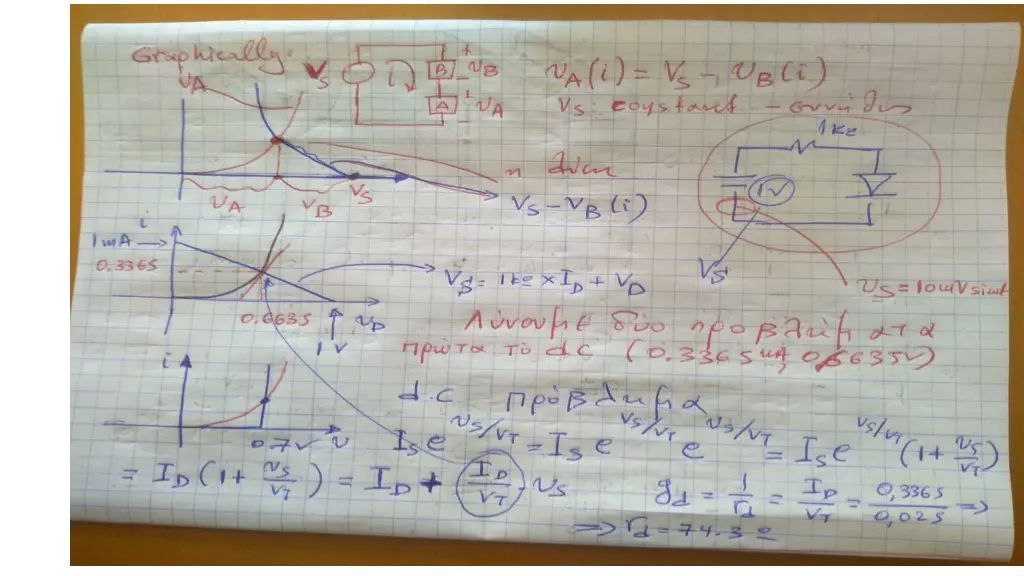 Graphically:
vA
Vs
i
+
B
- vB
+
A
- vA
vA(i) = Vs - vB(i)
Vs: constant - συνήθως
1kΩ
1V
Vs
vs = 10mV sinωt
η λύση
vA vB Vs
Vs - VB(i)
i
1mA →
0.3365
0.6635
1V
vD
Vs = 1kΩ × ID + VD
Λύνουμε δύο προβλήματα
πρώτα το dc (0.3365mA, 0.6635V)
i
0.7V v
d.c πρόβλημα
Is e^vs/vT = Is e^Vs/vT e^vs/vT = Is e^Vs/vT (1 + vs/vT)
= ID (1 + vs/vT) = ID + ID/vT · vs
gd = 1/rd = ID/VT = 0,3365/0,025 ⇒
⇒ rd = 74.3 Ω